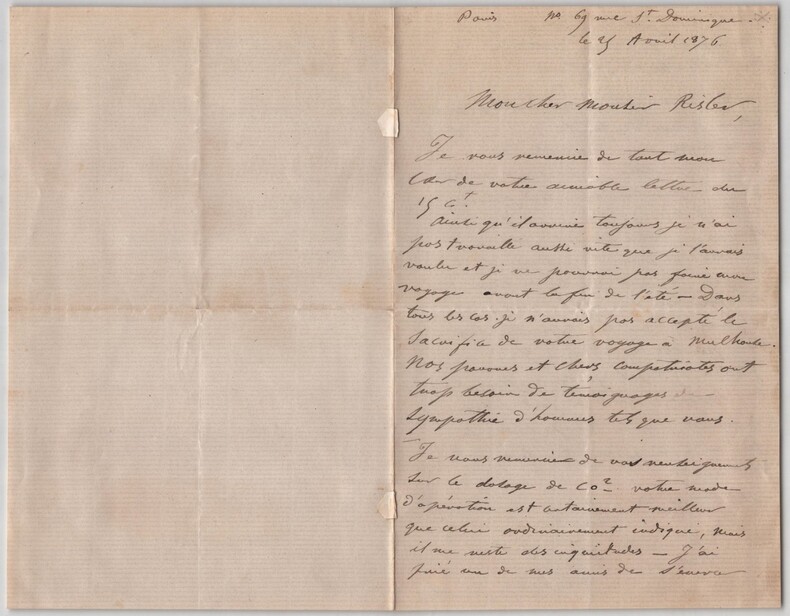 Paris 69 rue St. Dominique.
le 25 Avril 1876
Mon cher Monsieur Risler,
Je vous remercie de tout mon
cœur de votre aimable lettre du
15 Ct.
Ainsi qu'il arrive toujours je n'ai
pas travaillé aussi vite que je l'aurais
voulu et je ne pourrai pas faire mon
voyage avant la fin de l'été — Dans
tous les cas je n'aurais pas accepté le
sacrifice de votre voyage à Mulhouse.
Nos pauvres et chers compatriotes ont
trop besoin de témoignages de
sympathie d'hommes tels que vous.
Je vous remercie de vos renseignements
sur le dosage de CO² votre mode
d'opération est certainement meilleur
que celui ordinairement indiqué, mais
il me reste des inquiétudes — J'ai
prié un de mes amis de